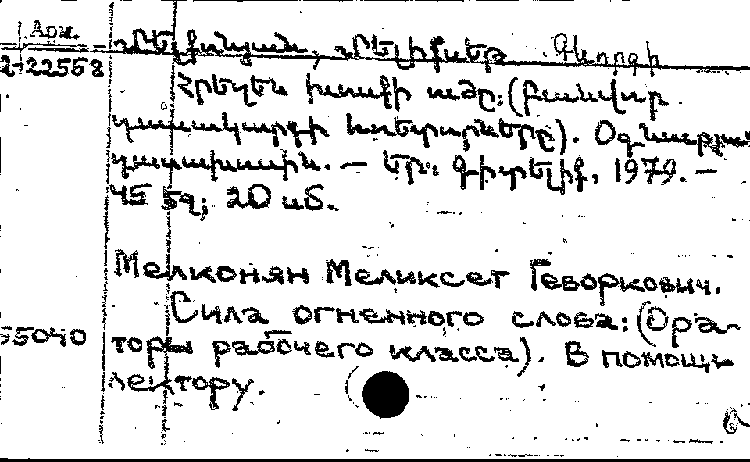 Арм.
Մելքոնյան, Մելիքսեթ Գևորգի
2-22558
Հրեղեն խոսքի ուժը: (Բանվոր
դասակարգի հռետորները). Օգնություն
դասախոսին. — Եր.: Գիտելիք, 1979. —
45 էջ; 20 սմ.
Мелконян Меликсет Геворкович.
Сила огненного слова: (Ора-
55040
торы рабочего класса). В помощь
лектору.